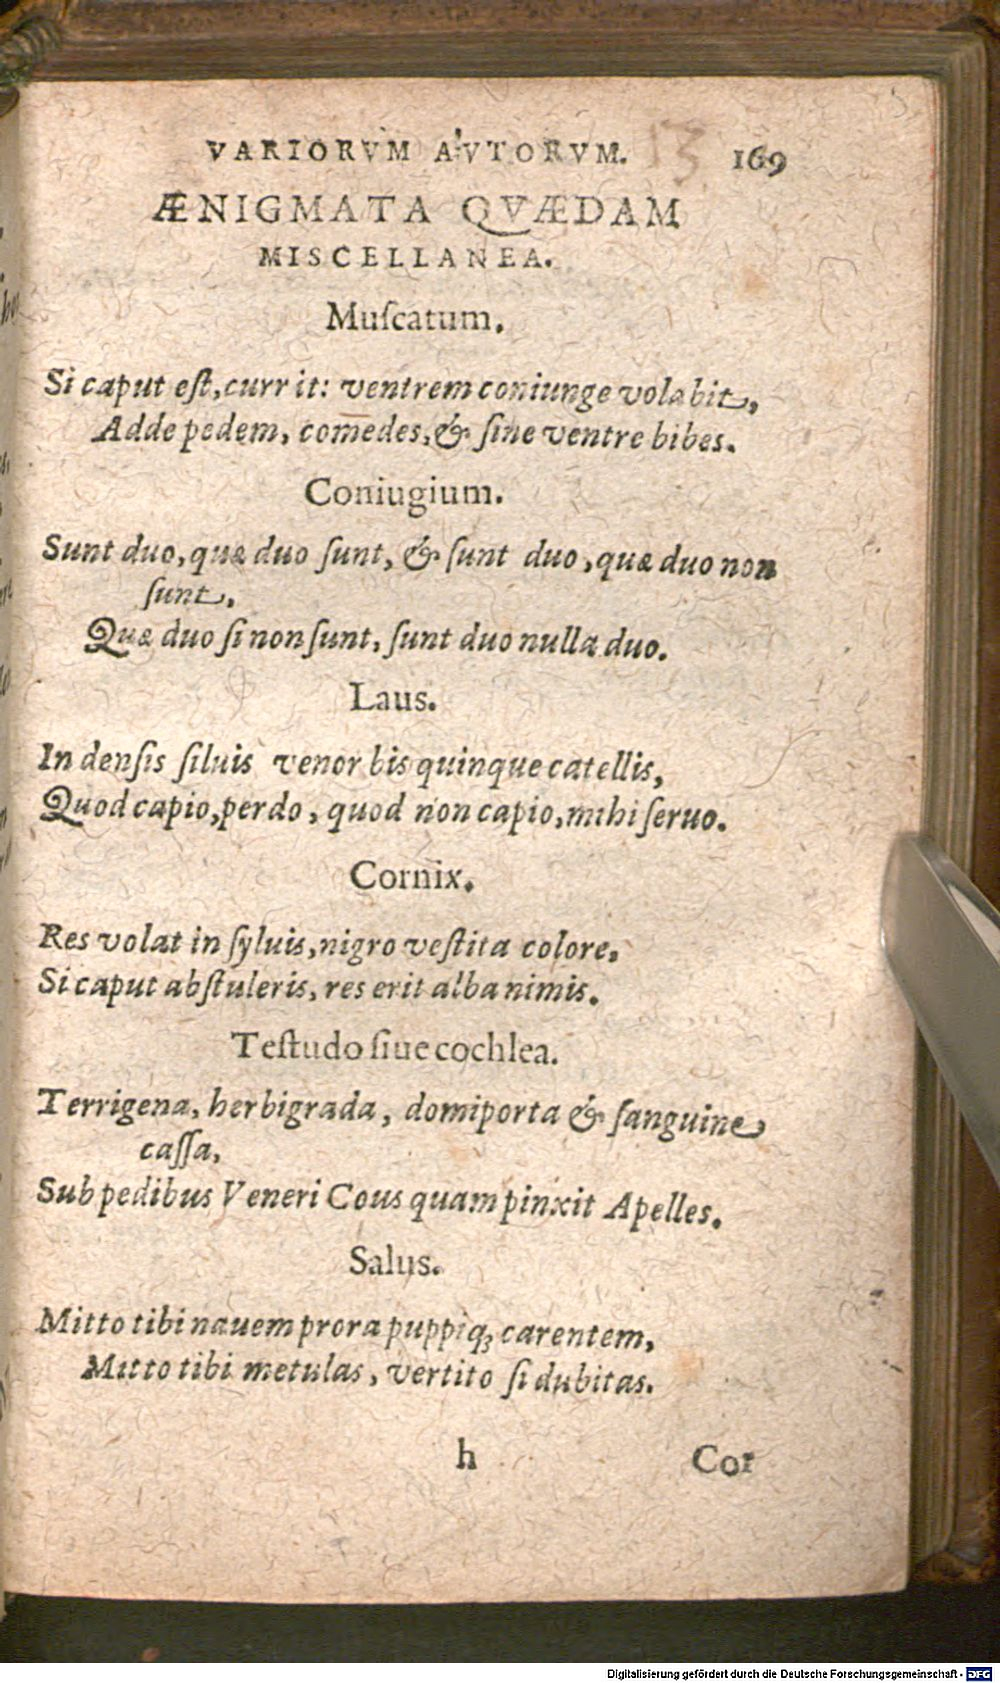 VARIORVM AVTORVM. 169
ÆNIGMATA QVÆDAM
MISCELLANEA.
Muſcatum.
Si caput eſt, currit: ventrem coniunge volabit,
Adde pedem, comedes, & ſine ventre bibes.
Coniugium.
Sunt duo, quæ duo ſunt, & ſunt duo, quæ duo non
ſunt,
Quæ duo ſi non ſunt, ſunt duo nulla duo.
Laus.
In denſis ſiluis venor bis quinque catellis,
Quod capio, perdo, quod non capio, mihi ſeruo.
Cornix.
Res volat in ſyluis, nigro veſtita colore,
Si caput abſtuleris, res erit alba nimis.
Teſtudo ſiue cochlea.
Terrigena, herbigrada, domiporta & ſanguine
caſſa,
Sub pedibus Veneri Cous quam pinxit Apelles.
Salus.
Mitto tibi nauem prora puppiq; carentem,
Mitto tibi metulas, vertito ſi dubitas.
h Cor
Digitalisierung gefördert durch die Deutsche Forschungsgemeinschaft - DFG